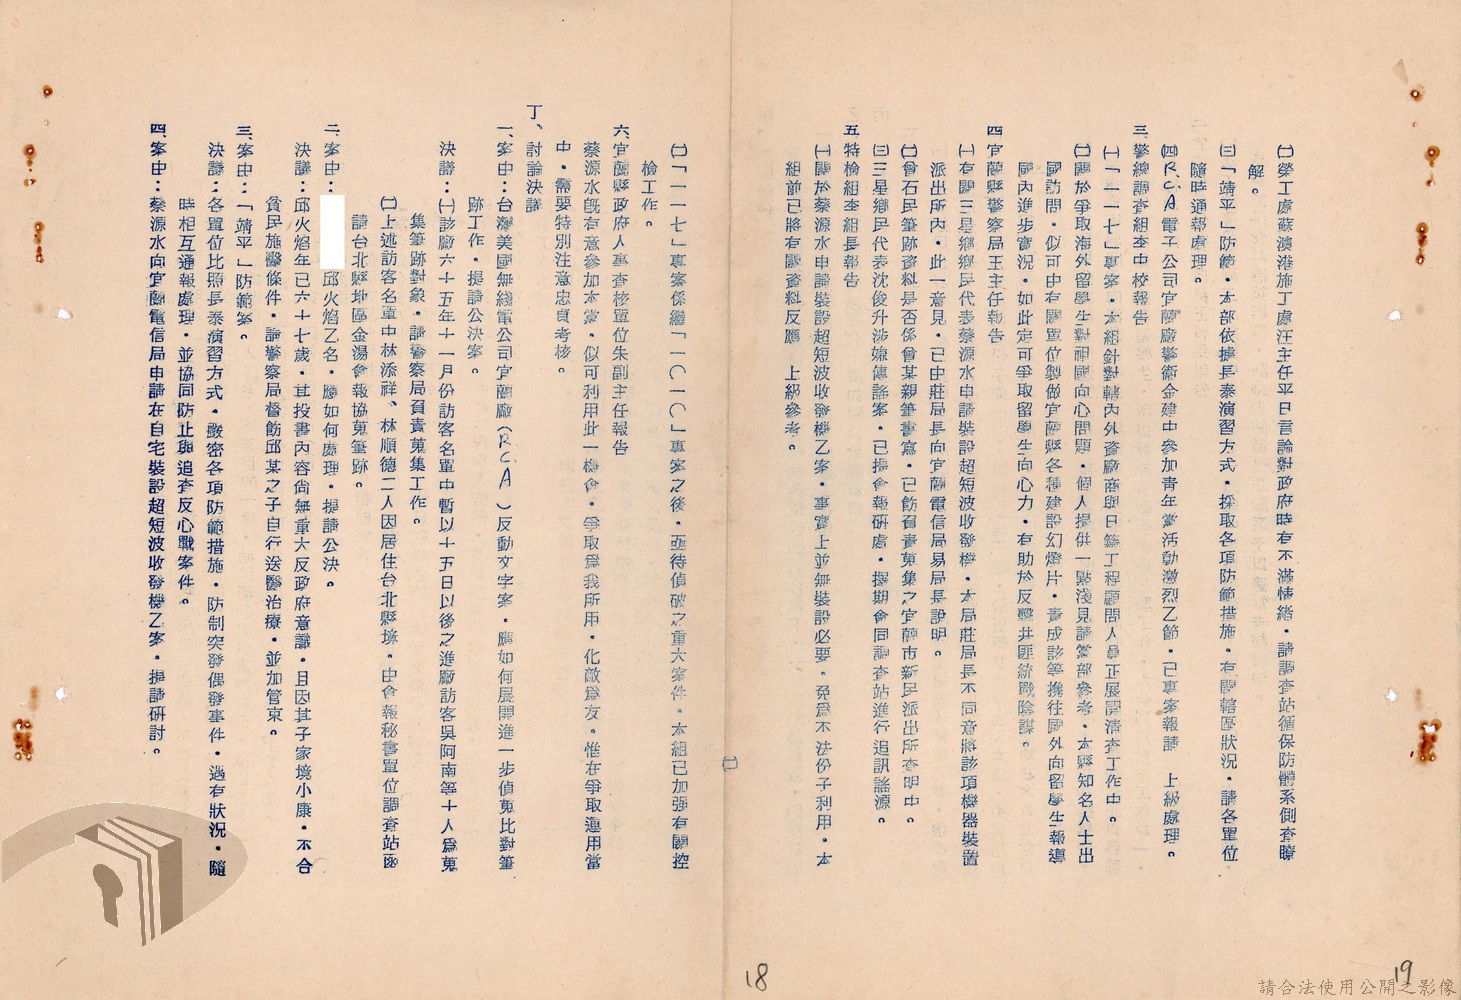 ㈡榮工處蘇澳港施工處汪主任平日言論對政府時有不滿情緒，請調查站循保防體系側查瞭
解。
㈢「靖平」防範，本部依據長泰演習方式，採取各項防範措施，有關轄區狀況，請各單位
隨時通報處理。
㈣RCA電子公司宜蘭廠警衛金建中參加青年黨活動激烈乙節，已專案報請　上級處理。
三、警總調查組李中校報告
㈠「一一七」專案，本組針對轄內外資廠商與日籍工程顧問人員正展開清查工作中。
㈡關於爭取海外留學生對祖國向心問題，個人提供一點淺見請黨部參考，本縣知名人士出
國訪問，似可由有關單位製做宜蘭縣各種建設幻燈片，書成話等攜往國外向留學生報導
國內進步實況，如此定可爭取留學生向心力，有助於反擊共匪統戰陰謀。
四、宜蘭縣警察局王主任報告
㈠有關三星鄉鄉民代表蔡源水申請裝設超短波收發機，本局莊局長不同意將該項機器裝置
派出所內，此一意見，已由莊局長向宜蘭電信局易局長說明。
㈡曾石民筆跡資料是否係曾某親筆書寫，已飭負責蒐集之宜蘭市新民派出所查明中。
㈢三星鄉民代表沈俊升涉嫌傳謠案，已提會報研處，擇期會同調查站進行追訊謠源。
五、特檢組李組長報告
㈠關於蔡源水申請裝設超短波收發機乙案，事實上並無裝設必要，免為不法份子利用，本
組前已將有關資料反應　上級參考。
㈡「一一七」專案係繼「一〇一〇」專案之後，亟待偵破之重大案件，本組已加強有關控
檢工作。
六、宜蘭縣政府人事查核單位朱副主任報告
蔡源水既有意參加本黨，似可利用此一機會，爭取為我所用，化敵為友。惟在爭取運用當
中，需要特別注意忠貞考核。
丁、討論決議
一、案由：台灣美國無綫電公司宜蘭廠（RCA）反動文字案，應如何展開進一步偵蒐比對筆
跡工作，提請公決案。
決議：㈠該廠六十五年十一月份訪客名單中暫以十五日以後之進廠訪客吳阿南等十人為蒐
集筆跡對象，請警察局負責蒐集工作。
㈡上述訪客名單中林添祥、林順德二人因居住台北縣境，由會報秘書單位調查站函
請台北縣地區金湯會報協蒐筆跡。
二、案由：　邱火焰乙名，應如何處理，提請公決。
決議：邱火焰年已六十七歲，其投書內容尚無重大反政府意識，且因其子家境小康，不合
貧民施醫條件，請警察局督飭邱某之子自行送醫治療，並加管束。
三、案由：「靖平」防範案。
決議：各單位比照長泰演習方式，嚴密各項防範措施，防制突發偶發事件，遇有狀況，隨
時相互通報處理，並協同防止與追查反心戰案件。
四、案由：蔡源水向宜蘭電信局申請在自宅裝設超短波收發機乙案，提請研討。
㈡
18
19
請合法使用公開之影像